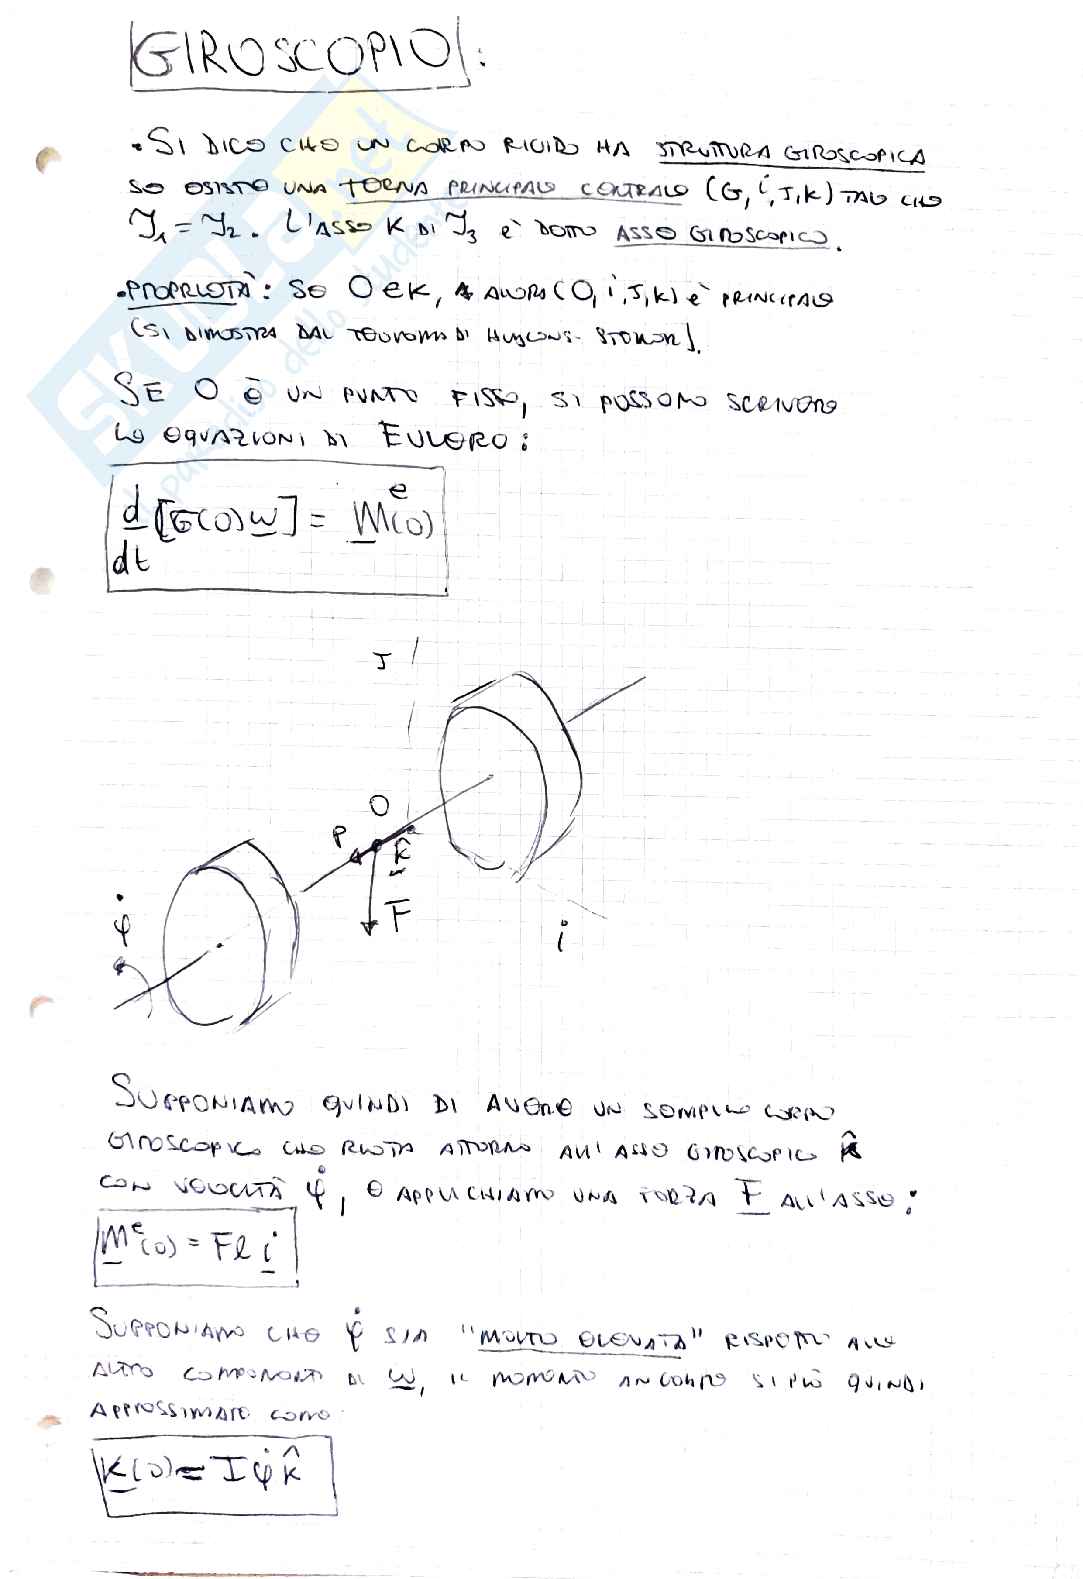 GIROSCOPIO:
• SI DICE CHE UN CORPO RIGIDO HA STRUTTURA GIROSCOPICA
SE ESISTE UNA TERNA PRINCIPALE CENTRALE (G, i, J, k) TALE CHE
I₁ = I₂. L'ASSE K DI I₃ è DETTO ASSE GIROSCOPICO.
• PROPRIETÀ: SE O ∈ K, ALLORA (O, i, J, k) è PRINCIPALE
(SI DIMOSTRA DAL TEOREMA DI HUYGENS-STEINER).
SE O È UN PUNTO FISSO, SI POSSONO SCRIVERE
LE EQUAZIONI DI EULERO:
d/dt [G(O) ω] = Mᵉ(O)
J
O
P
k̂
F
φ̇
i
SUPPONIAMO QUINDI DI AVERE UN SEMPLICE CORPO
GIROSCOPICO CHE RUOTA ATTORNO ALL'ASSE GIROSCOPICO k̂
CON VELOCITÀ φ̇, E APPLICHIAMO UNA FORZA F ALL'ASSE:
Mᵉ(O) = Fl i
SUPPONIAMO CHE φ̇ SIA "MOLTO ELEVATA" RISPETTO ALLE
ALTRE COMPONENTI DI ω, IL MOMENTO ANGOLARE SI PUÒ QUINDI
APPROSSIMARE COME
K(O) = I φ̇ k̂